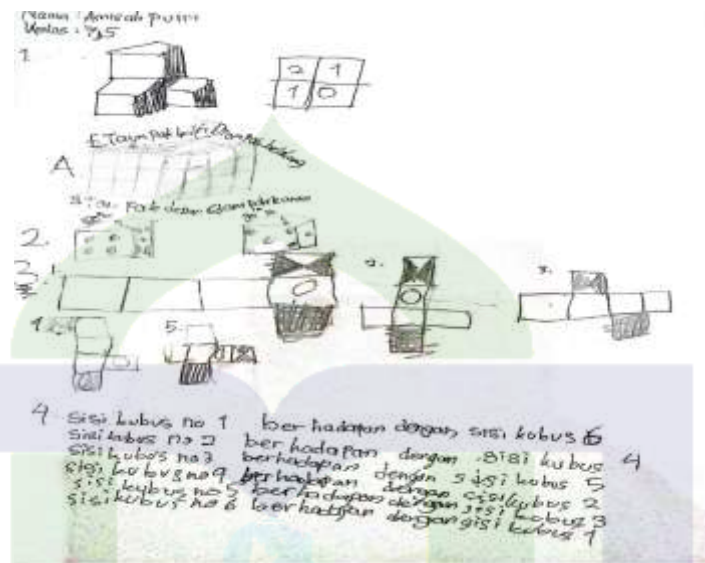 Nama : Annisah Putri
Kelas : 7.5
1
2 1
1 0
A
2.
3. 1.
2.
3.
4.
5.
4 Sisi kubus no 1 berhadapan dengan sisi kubus 6
Sisi kubus no 2 berhadapan dengan sisi kubus 4
Sisi kubus no 3 berhadapan dengan sisi kubus 5
Sisi kubus no 4 berhadapan dengan sisi kubus 2
Sisi kubus no 5 berhadapan dengan sisi kubus 3
Sisi kubus no 6 berhadapan dengan sisi kubus 1